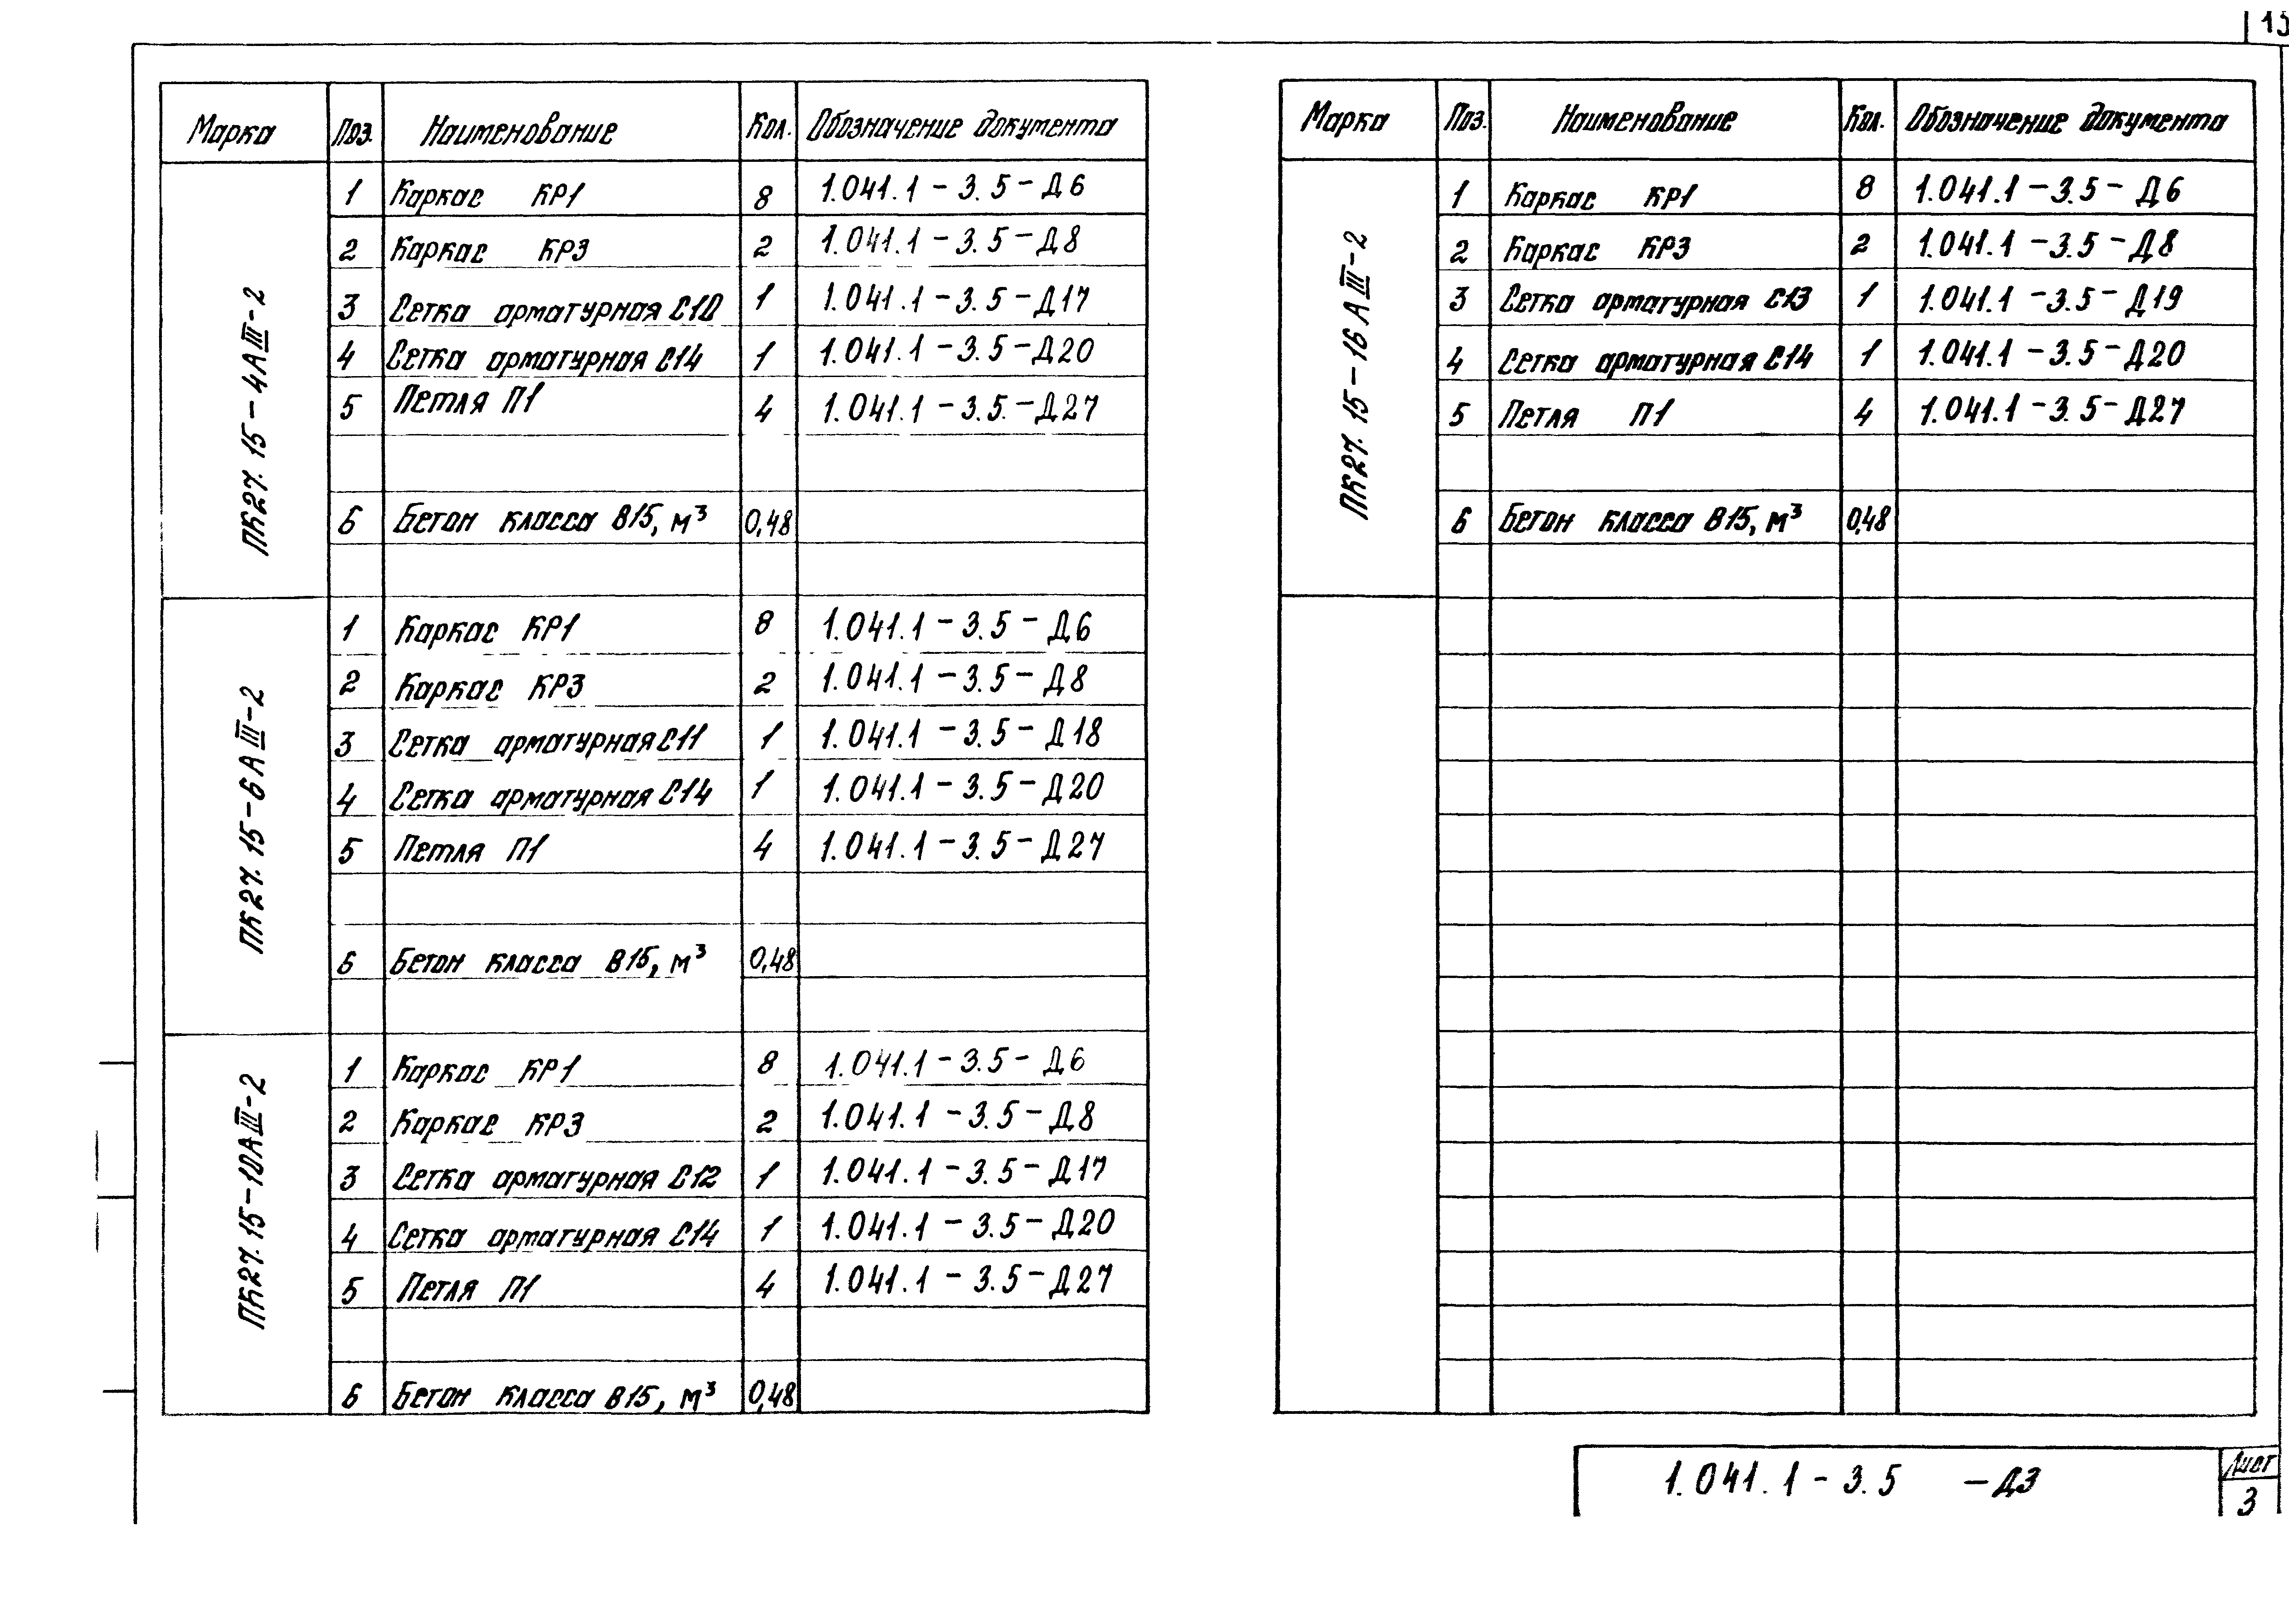 15
Марка Поз. Наименование Кол. Обозначение документа
ПК27.15-4АIII-2
1 Каркас КР1 8 1.041.1-3.5-Д6
2 Каркас КР3 2 1.041.1-3.5-Д8
3 Сетка арматурная С10 1 1.041.1-3.5-Д17
4 Сетка арматурная С14 1 1.041.1-3.5-Д20
5 Петля П1 4 1.041.1-3.5-Д27
6 Бетон класса В15, м³ 0,48
ПК27.15-6АIII-2
1 Каркас КР1 8 1.041.1-3.5-Д6
2 Каркас КР3 2 1.041.1-3.5-Д8
3 Сетка арматурная С11 1 1.041.1-3.5-Д18
4 Сетка арматурная С14 1 1.041.1-3.5-Д20
5 Петля П1 4 1.041.1-3.5-Д27
6 Бетон класса В15, м³ 0,48
ПК27.15-10АIII-2
1 Каркас КР1 8 1.041.1-3.5-Д6
2 Каркас КР3 2 1.041.1-3.5-Д8
3 Сетка арматурная С12 1 1.041.1-3.5-Д17
4 Сетка арматурная С14 1 1.041.1-3.5-Д20
5 Петля П1 4 1.041.1-3.5-Д27
6 Бетон класса В15, м³ 0,48
Марка Поз. Наименование Кол. Обозначение документа
ПК27.15-16АIII-2
1 Каркас КР1 8 1.041.1-3.5-Д6
2 Каркас КР3 2 1.041.1-3.5-Д8
3 Сетка арматурная С13 1 1.041.1-3.5-Д19
4 Сетка арматурная С14 1 1.041.1-3.5-Д20
5 Петля П1 4 1.041.1-3.5-Д27
6 Бетон класса В15, м³ 0,48
1.041.1-3.5 -Д3
Лист
3